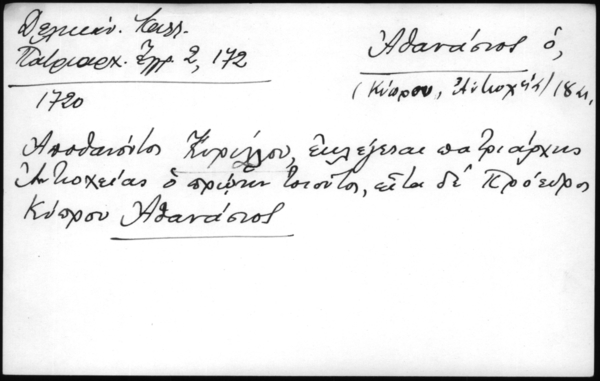 Δελικάν. Καλλ.
Πατριαρχ. Ἔγγρ. 2, 172
1720
Ἀθανάσιος ὁ,
(Κύπρου, Ἀντιοχείας) 18 αι.
Ἀποθανόντος Κυρίλλου, ἐκλέγεται πατριάρχης
Ἀντιοχείας ὁ πρώην τοιοῦτος, εἶτα δὲ Πρόεδρος
Κύπρου Ἀθανάσιος